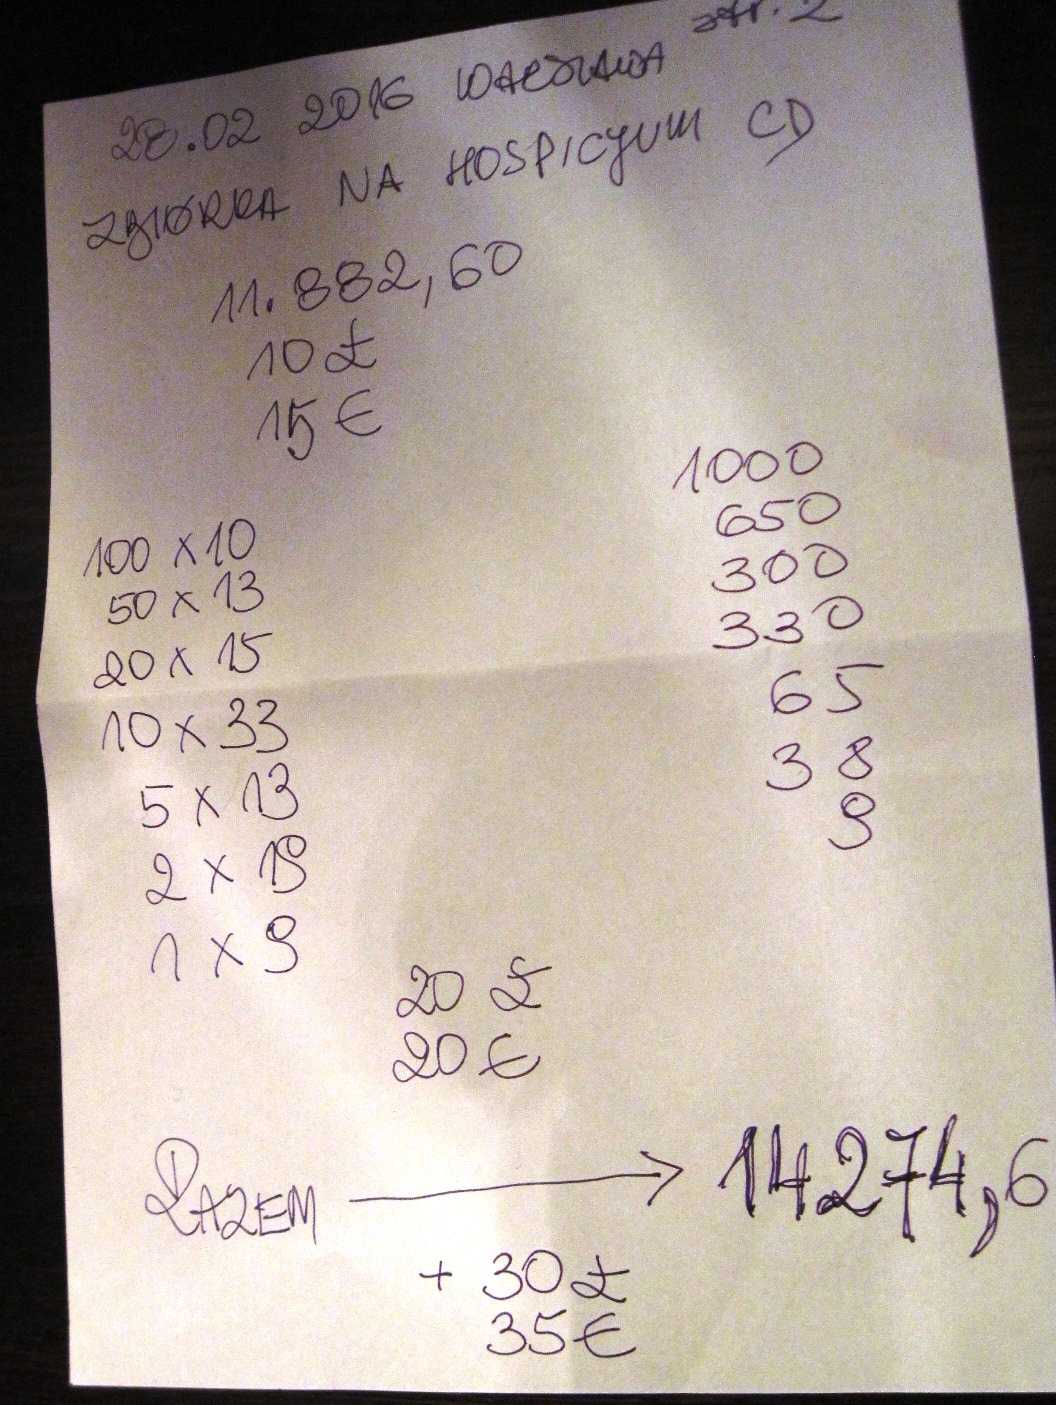 str. 2
28.02 2016 WARSZAWA
ZBIÓRKA NA HOSPICYUM CD
11.882,60
10 £
15 €
100 x 10
1000
50 x 13
650
20 x 15
300
10 x 33
330
5 x 13
65
2 x 19
38
1 x 9
9
20 £
20 €
RAZEM → 14274,6
+ 30 £
35 €